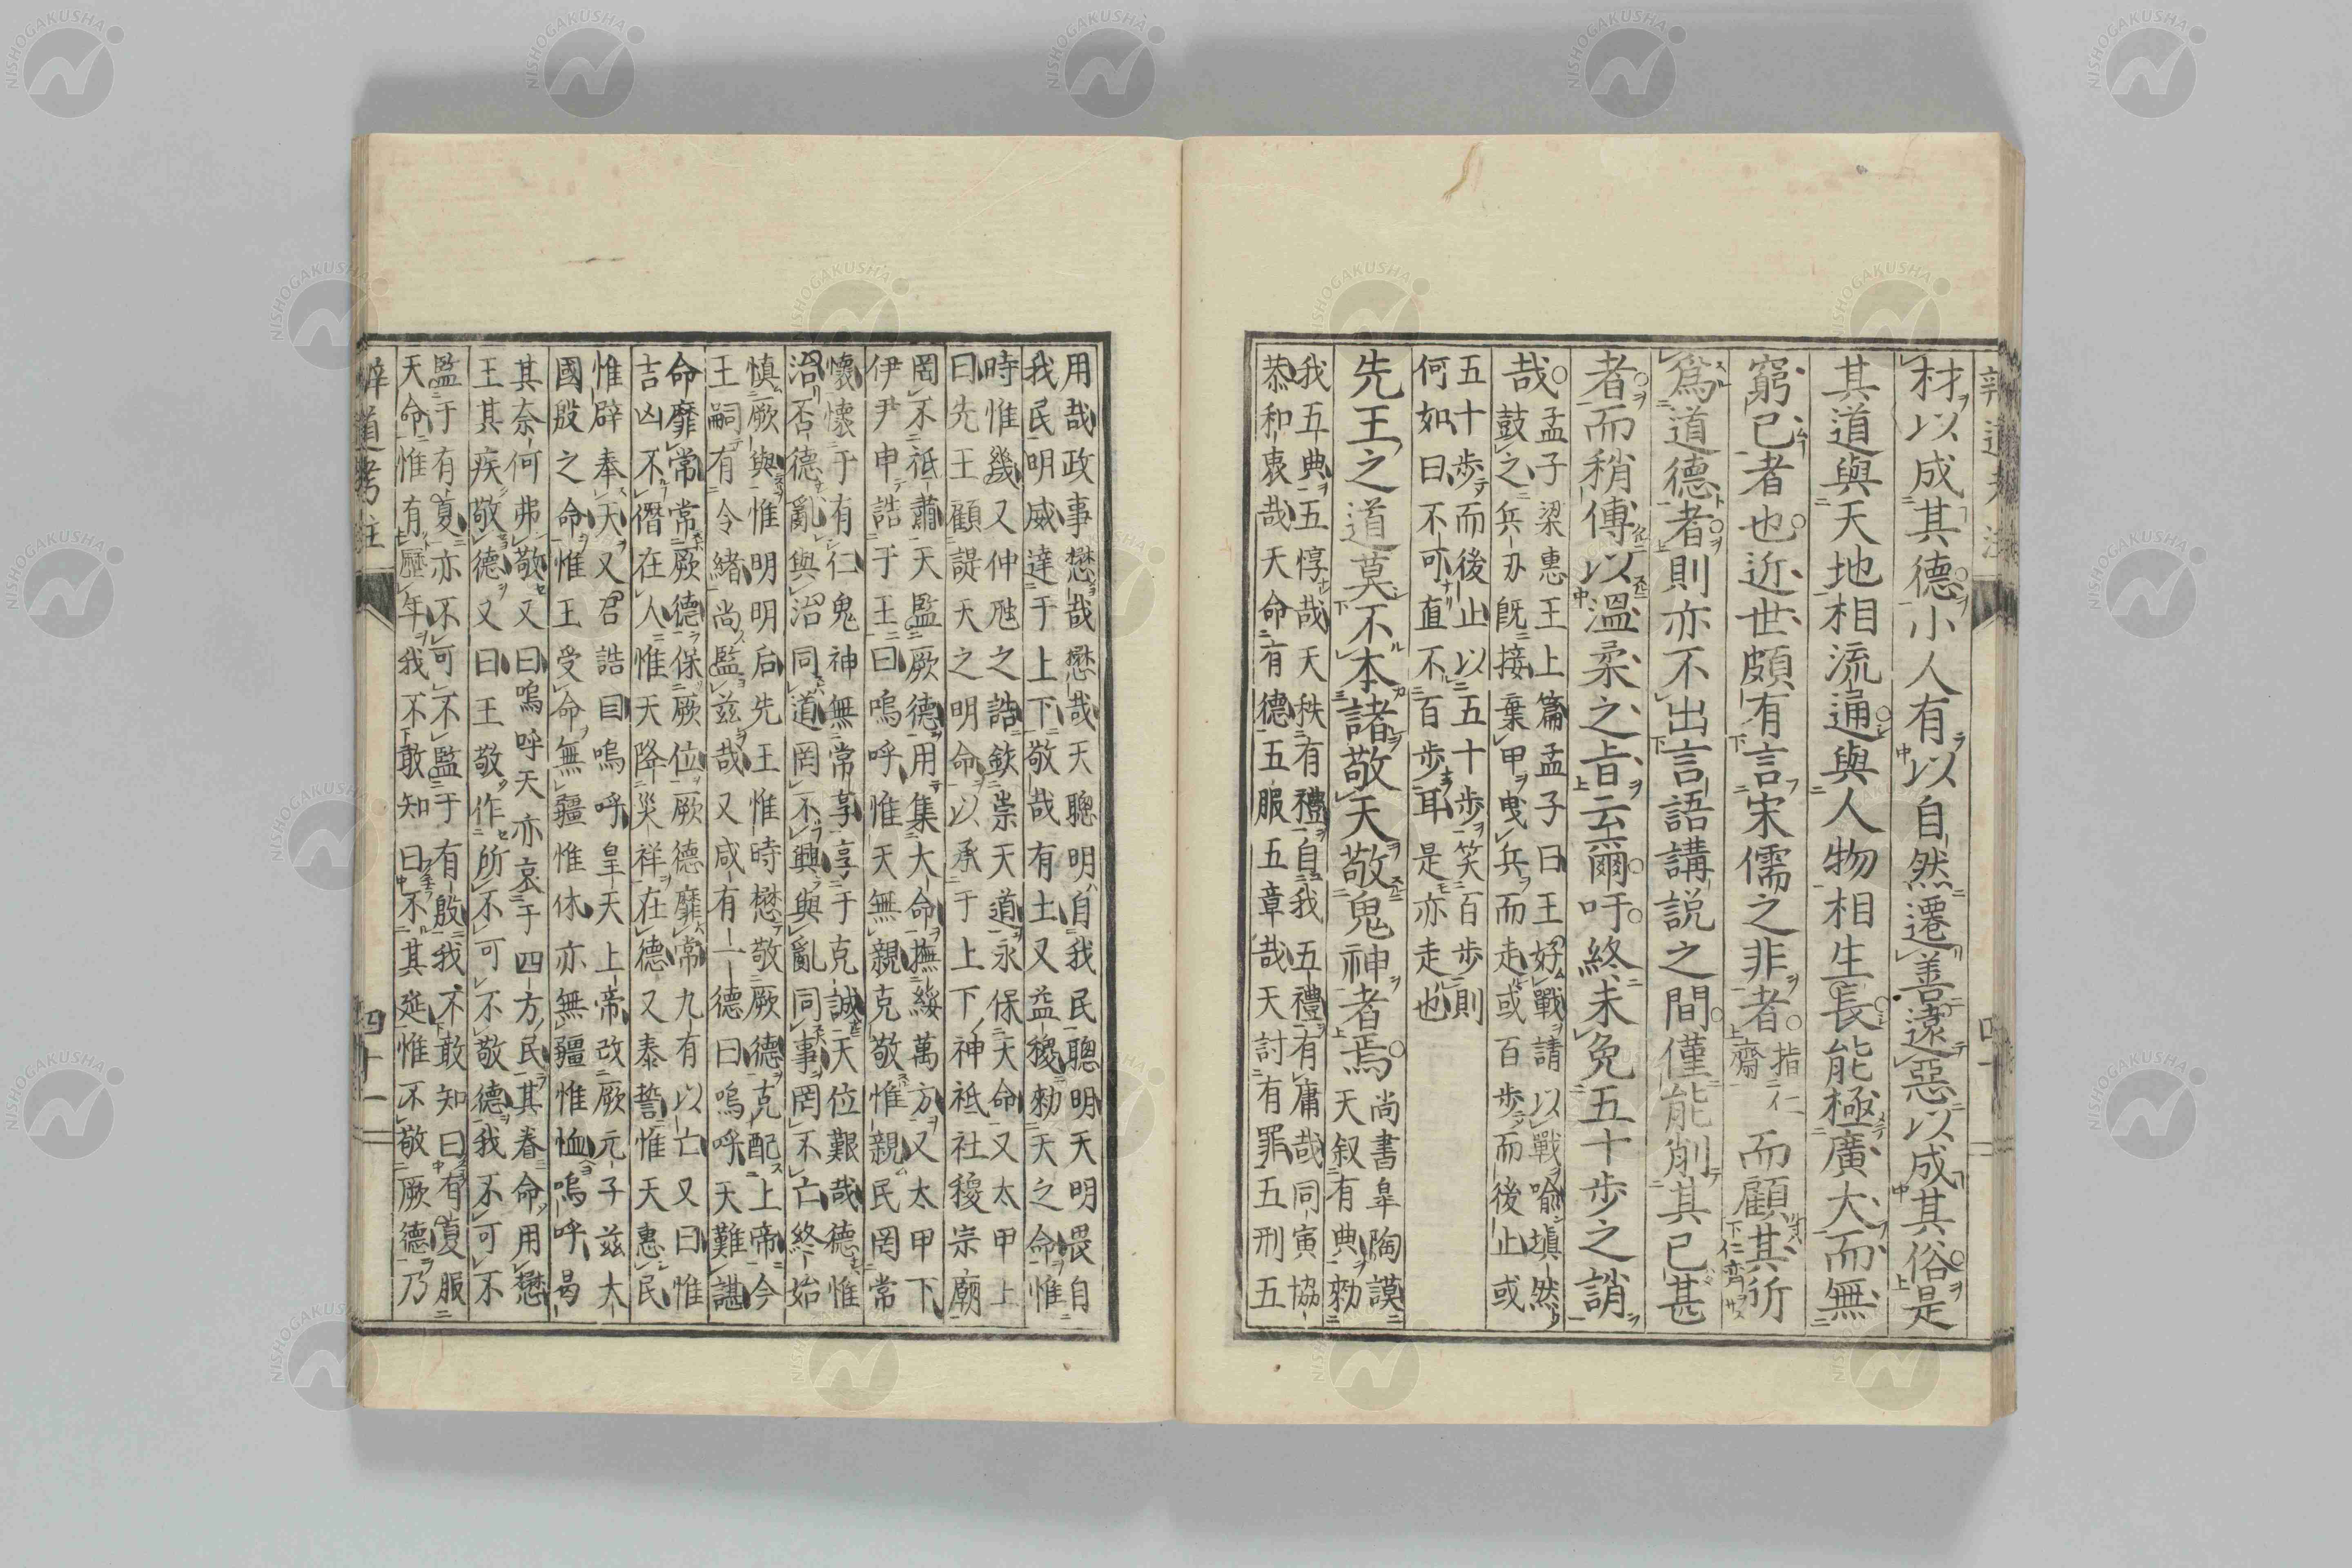 材以成其德小人有以自然遷善遠惡以成其俗是
其道與天地相流通與人物相生長能極廣大而無
窮已者也近世頗有言宋儒之非者指仁齋而顧其所
爲道德者則亦不出言語講説之間僅能削其已甚
者而稍傳以溫柔之旨云爾吁終未免五十歩之誚
哉孟子梁惠王上篇孟子曰王好戰請以戰喩塡然
鼓之兵刃旣接棄甲曳兵而走或百歩而後止或
五十歩而後止以五十歩笑百歩則
何如曰不可直不百歩耳是亦走也
先王之道莫不本諸敬天敬鬼神者焉尚書皐陶謨
天叙有典勑
我五典五惇哉天秩有禮自我五禮有庸哉同寅協
恭和衷哉天命有德五服五章哉天討有罪五刑五
用哉政事懋哉懋哉天聰明自我民聰明天明畏自
我民明威達于上下敬哉有土又益稷勑天之命惟
時惟幾又仲虺之誥欽崇天道永保天命又太甲上
曰先王顧諟天之明命以承于上下神祇社稷宗廟
罔不祗肅天監厥德用集大命撫綏萬方又太甲下
伊尹申誥于王曰嗚呼惟天無親克敬惟親民罔常
懷懷于有仁鬼神無常享享于克誠天位艱哉德惟
治否德亂與治同道罔不興與亂同事罔不亡終始
愼厥與惟明明后先王惟時懋敬厥德克配上帝今
王嗣有令緖尚監兹哉又咸有一德曰嗚呼天難諶
命靡常常厥德保厥位厥德靡常九有以亡又曰惟
吉凶不僭在人惟天降災祥在德又泰誓惟天惠民
惟辟奉天又召誥曰嗚呼皇天上帝改厥元子兹大
國殷之命惟王受命無疆惟休亦無疆惟恤嗚呼曷
其奈何弗敬又曰嗚呼天亦哀于四方民其眷命用懋
王其疾敬德又曰王敬作所不可不敬德我不可不
監于有夏亦不可不監于有殷我不敢知曰有夏服
天命惟有歷年我不敢知曰不其延惟不敬厥德乃
辨道考註
四十一
NISHOGAKUSHA